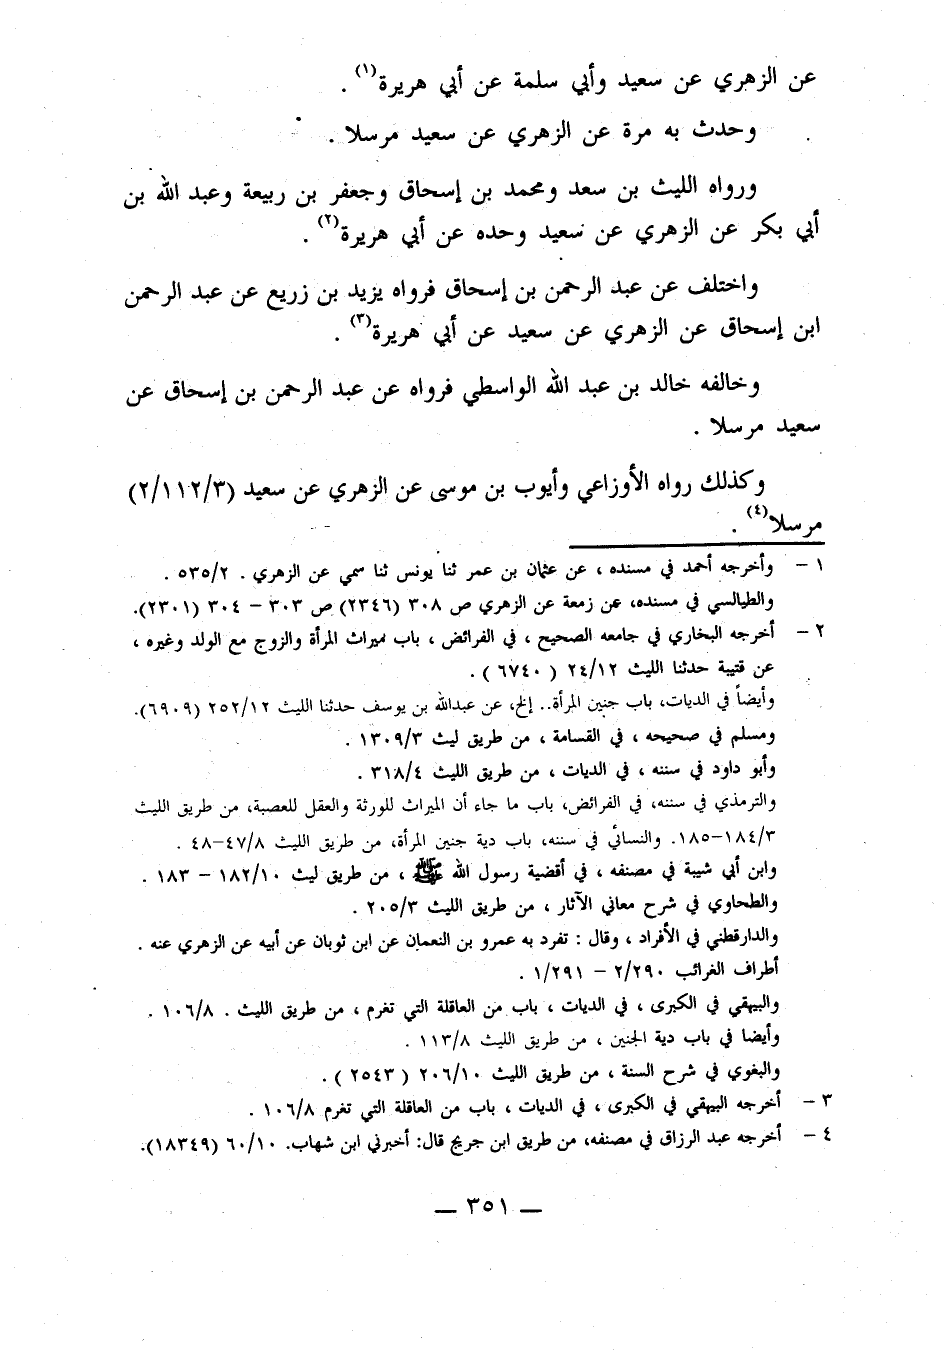 عن الزهري عن سعيد وأبي سلمة عن أبي هريرة(١) .
وحدث به مرة عن الزهري عن سعيد مرسلا .
ورواه الليث بن سعد ومحمد بن إسحاق وجعفر بن ربيعة وعبد الله بن
أبي بكر عن الزهري عن سعيد وحده عن أبي هريرة(٢) .
واختلف عن عبد الرحمن بن إسحاق فرواه يزيد بن زريع عن عبد الرحمن
ابن إسحاق عن الزهري عن سعيد عن أبي هريرة(٣) .
وخالفه خالد بن عبد الله الواسطي فرواه عن عبد الرحمن بن إسحاق عن
سعيد مرسلا .
وكذلك رواه الأوزاعي وأيوب بن موسى عن الزهري عن سعيد (٢/١١٢/٣)
مرسلا(٤) .
١ – وأخرجه أحمد في مسنده ، عن عثمان بن عمر ثنا يونس ثنا سمي عن الزهري . ٥٣٥/٢ .
والطيالسي في مسنده، عن زمعة عن الزهري ص ٣٠٨ (٢٣٤٦) ص ٣٠٣ – ٣٠٤ (٢٣٠١).
٢ – أخرجه البخاري في جامعه الصحيح ، في الفرائض ، باب ميراث المرأة والزوج مع الولد وغيره ،
عن قتيبة حدثنا الليث ٢٤/١٢ ( ٦٧٤٠ ) .
وأيضاً في الديات، باب جنين المرأة.. إلخ، عن عبدالله بن يوسف حدثنا الليث ٢٥٢/١٢ (٦٩٠٩).
ومسلم في صحيحه ، في القسامة ، من طريق ليث ١٣٠٩/٣ .
وأبو داود في سننه ، في الديات ، من طريق الليث ٣١٨/٤ .
والترمذي في سننه، في الفرائض، باب ما جاء أن الميراث للورثة والعقل للعصبة، من طريق الليث
١٨٤/٣–١٨٥. والنسائي في سننه، باب دية جنين المرأة، من طريق الليث ٤٧/٨–٤٨ .
وابن أبي شيبة في مصنفه ، في أقضية رسول الله ﷺ ، من طريق ليث ١٨٢/١٠ – ١٨٣ .
والطحاوي في شرح معاني الآثار ، من طريق الليث ٢٠٥/٣ .
والدارقطني في الأفراد ، وقال : تفرد به عمرو بن النعمان عن ابن ثوبان عن أبيه عن الزهري عنه .
أطراف الغرائب ٢/٢٩٠ – ١/٢٩١ .
والبيهقي في الكبرى ، في الديات ، باب من العاقلة التي تغرم ، من طريق الليث . ١٠٦/٨ .
وأيضا في باب دية الجنين ، من طريق الليث ١١٣/٨ .
والبغوي في شرح السنة ، من طريق الليث ٢٠٦/١٠ ( ٢٥٤٣ ) .
٣ – أخرجه البيهقي في الكبرى ، في الديات ، باب من العاقلة التي تغرم ١٠٦/٨ .
٤ – أخرجه عبد الرزاق في مصنفه، من طريق ابن جريج قال: أخبرني ابن شهاب. ٦٠/١٠ (١٨٣٤٩).
— ٣٥١ —